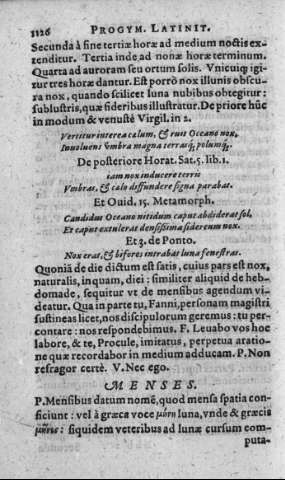 1126 PROGYM. LATINIT.
Secunda à fine tertiæ horæ ad medium noctis ex-
tenditur. Tertia inde ad nonæ horæ terminum.
Quarta ad auroram seu ortum solis. Vnicuiq́; igi-
tur tres horæ dantur. Est porrò nox illunis obscu-
ra nox, quando scilicet luna nubibus obtegitur:
sublustris, quæ sideribus illustratur. De priore hũc
in modum & venustè Virgil. in 2.
Vertitur interea cælum, & ruit Oceano nox,
Inuoluens vmbra magna terrasq́; polumq́;.
De posteriore Horat. Sat. 5. lib. 1.
iam nox inducere terris
Vmbras, & cælo diffundere signa parabat.
Et Ouid. 15. Metamorph.
Candidus Oceano nitidum caput abdiderat sol,
Et caput extulerat densissima siderum nox.
Et 3. de Ponto.
Nox erat, & bifores intrabat luna fenestras.
Quoniã de die dictum est satis, cuius pars est nox,
naturalis, inquam, diei: similiter aliquid de heb-
domade, sequitur vt de mensibus agendum vi-
deatur. Qua in parte tu, Fanni, personam magistri
sustineas licet, nos discipulorum geremus: tu per-
contare: nos respondebimus. F. Leuabo vos hoc
labore, & te, Procule, imitatus, perpetua oratio-
ne quæ recordabor in medium adducam. P. Non
refragor certè. V. Nec ego.
MENSES.
P. Mensibus datum nomẽ, quod mensa spatia con-
ficiunt: vel à græca voce μήνη luna, vnde & græcis
μῆνες: siquidem veteribus ad lunæ cursum com-
puta-